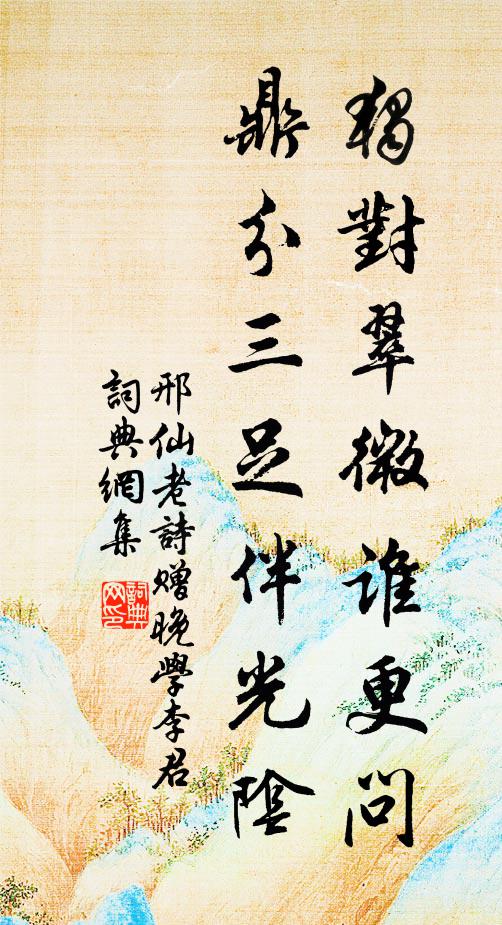 獨對翠微誰更問
鼎分三足伴光陰
邢仙老詩贈晚學李君
詞典網集
詞典
网印